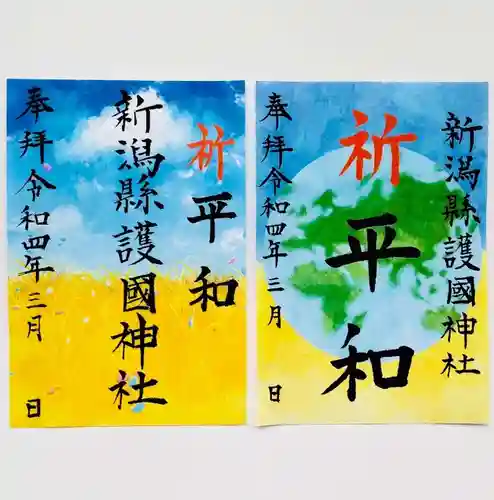 祈平和
新潟縣護國神社
奉拝令和四年三月 日
新潟縣護國神社
祈平和
奉拝令和四年三月 日